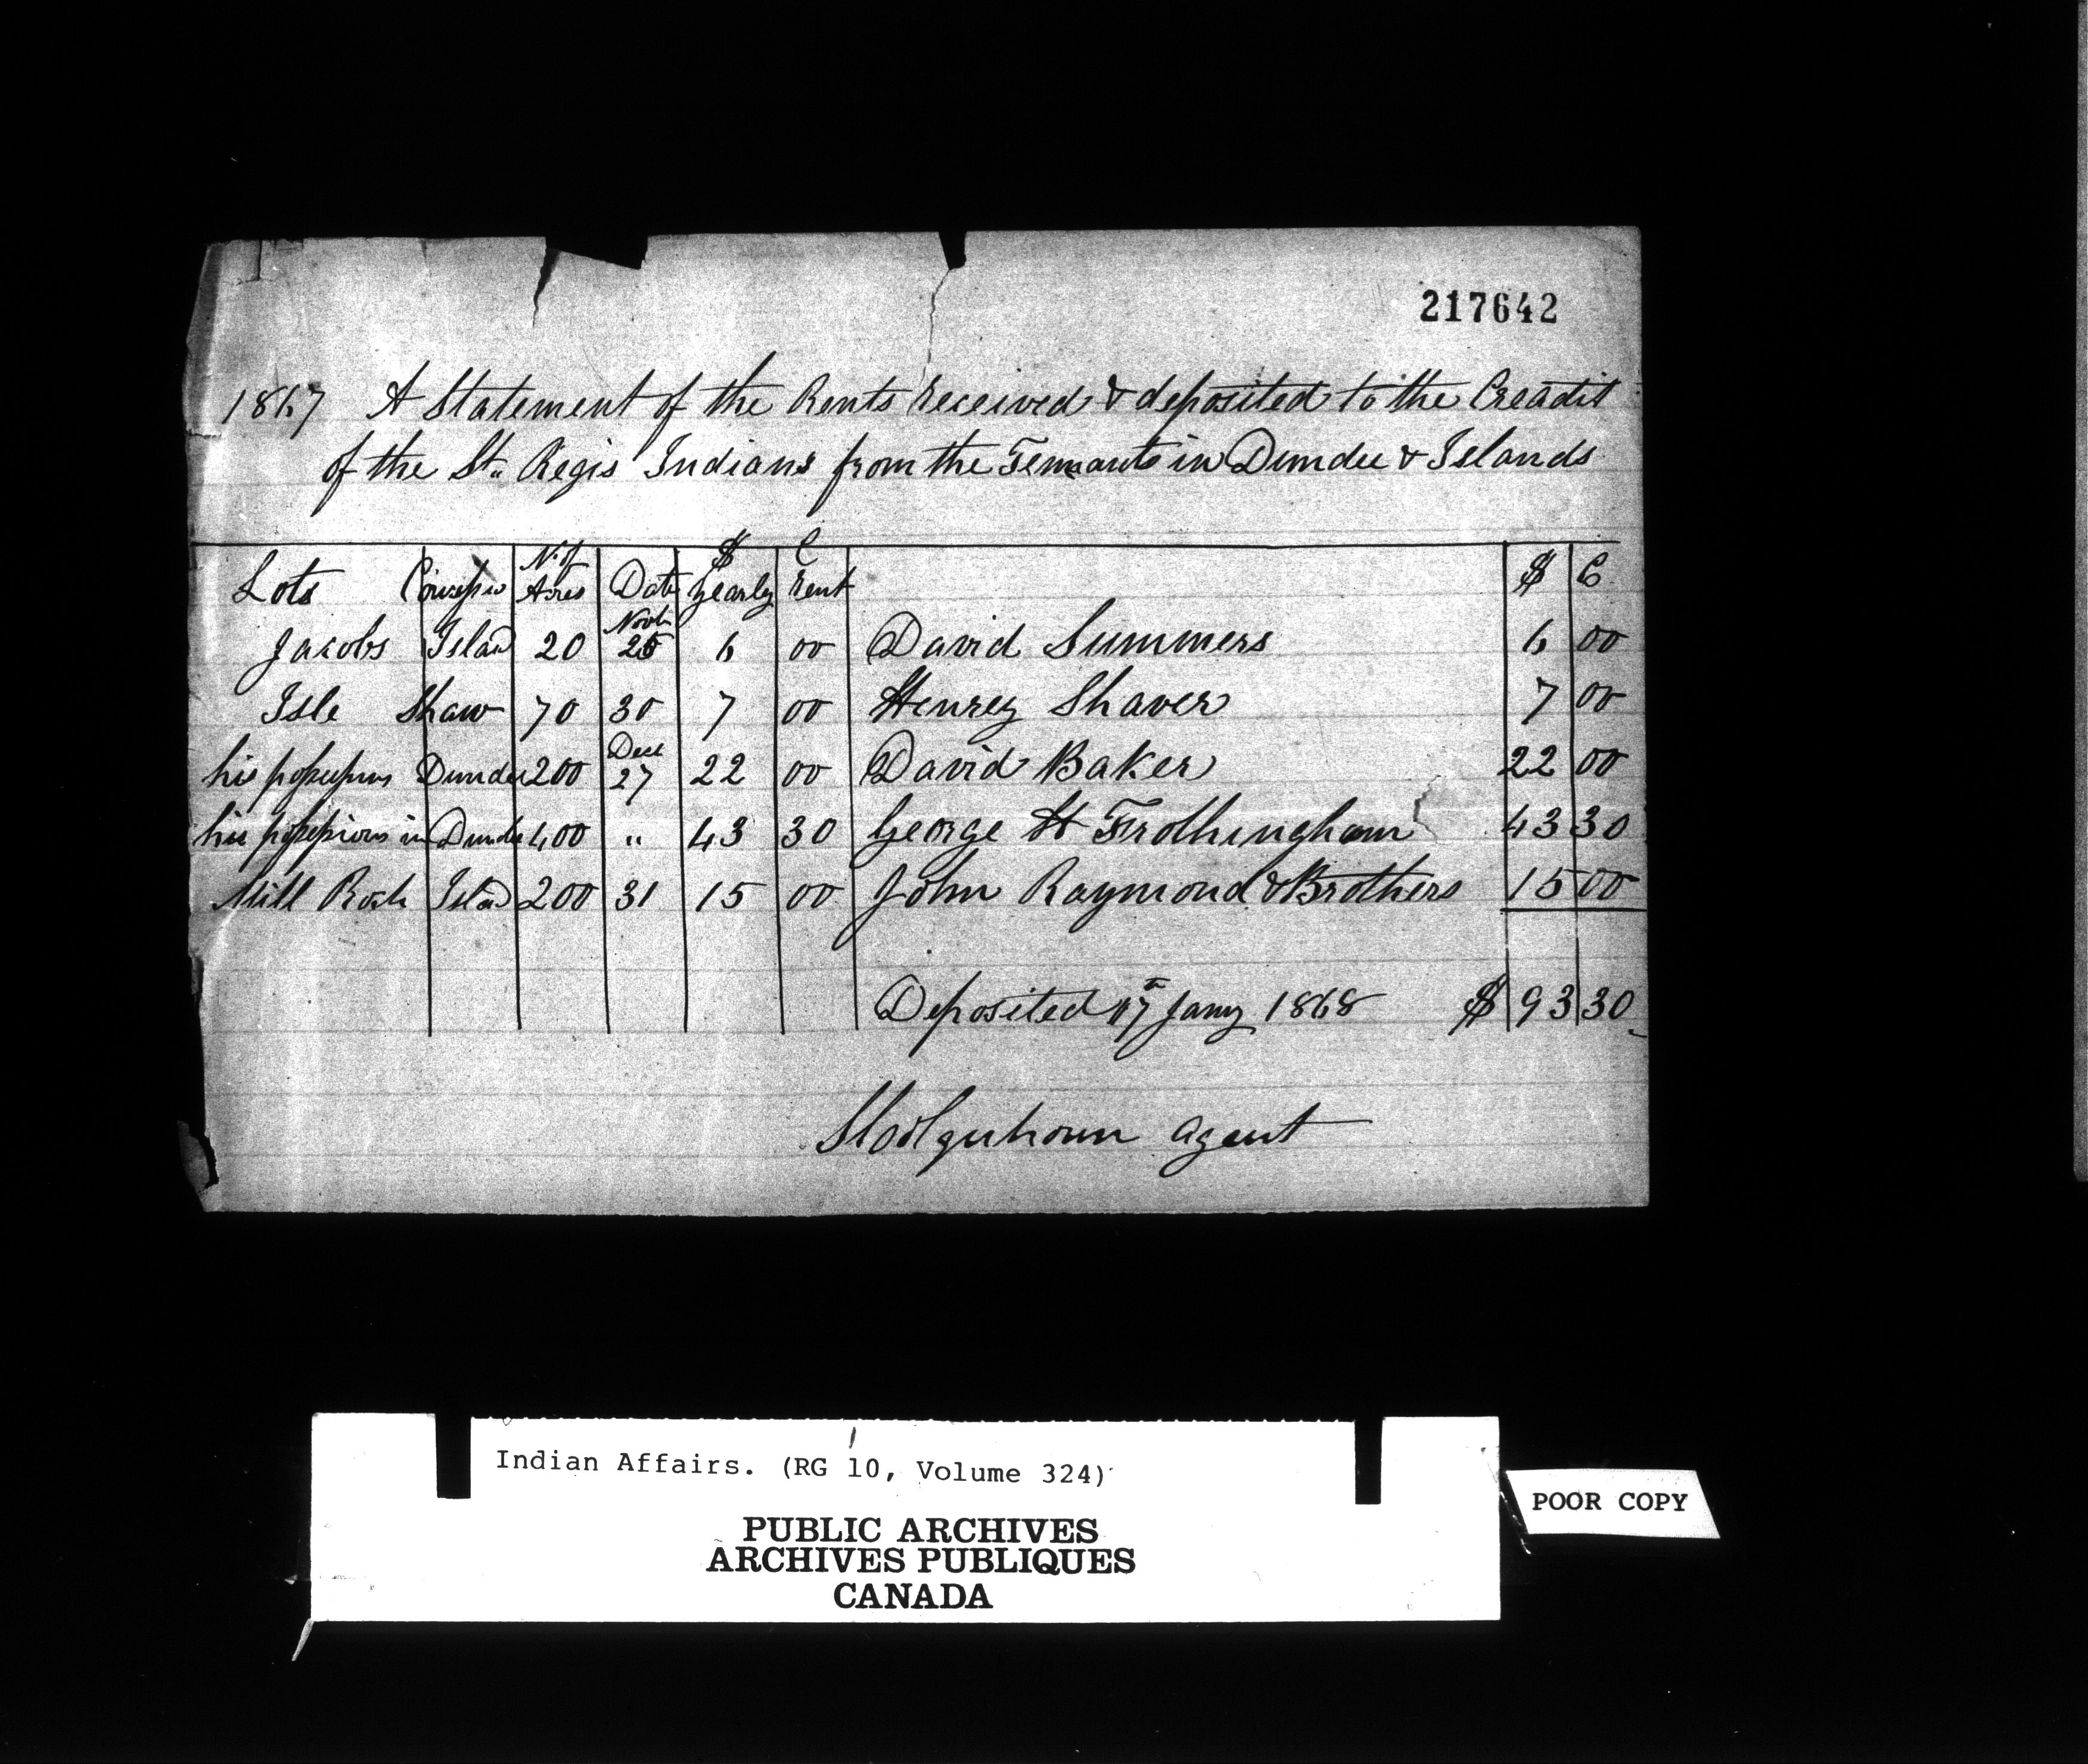 217642
1867 A Statement of the Rents received & deposited to the Creadit
of the St. Regis Indians from the Tennants in Dundee & Islands
Lots Concessn No of Acres Date $ yearly C Rent $ C
Jacobs Island 20 Novb 25 6 00 David Summers 6 00
Isle Shaw 70 30 7 00 Henrey Shaver 7 00
his possessions Dundee 200 Dece 27 22 00 David Baker 22 00
his possessions in Dundee 400 " 43 30 George H Frothingham 43 30
Mill Roch Island 200 31 15 00 John Raymond & Brothers 15 00
Deposited 17th Jany 1868 $ 93 30
Colquhoun agent
Indian Affairs. (RG 10, Volume 324)
PUBLIC ARCHIVES
ARCHIVES PUBLIQUES
CANADA
POOR COPY